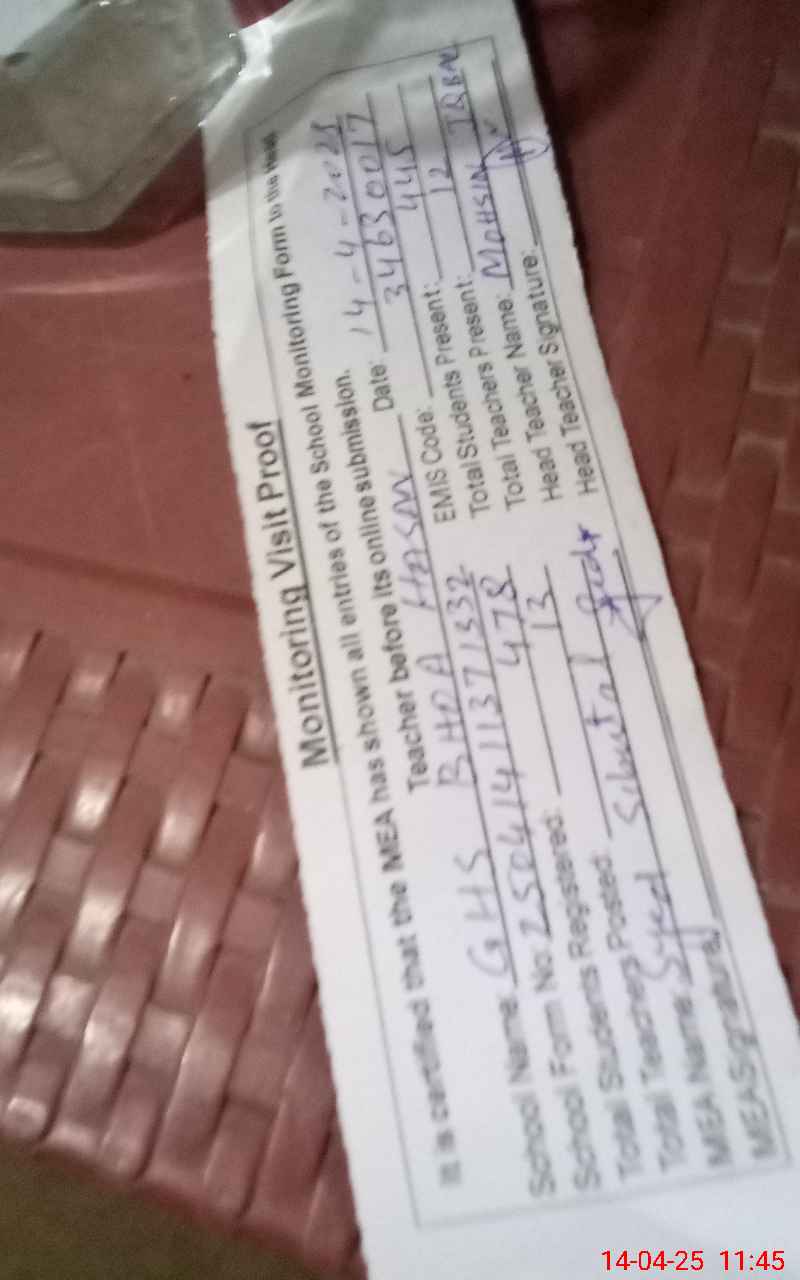 Monitoring Visit Proof
It is certified that the MEA has shown all entries of the School Monitoring Form to the Head
Teacher before its online submission.
School Name: GHS BHOA HASAN Date: 14-4-2025
School Form No: 2504141371332 EMIS Code: 34630017
Total Students Registered: 478 Total Students Present: 445
Total Teachers Posted: 13 Total Teachers Present: 12
MEA Name: Syed Head Teacher Name: MOHSIN IQBAL
MEA Signature: Head Teacher Signature:
14-04-25 11:45